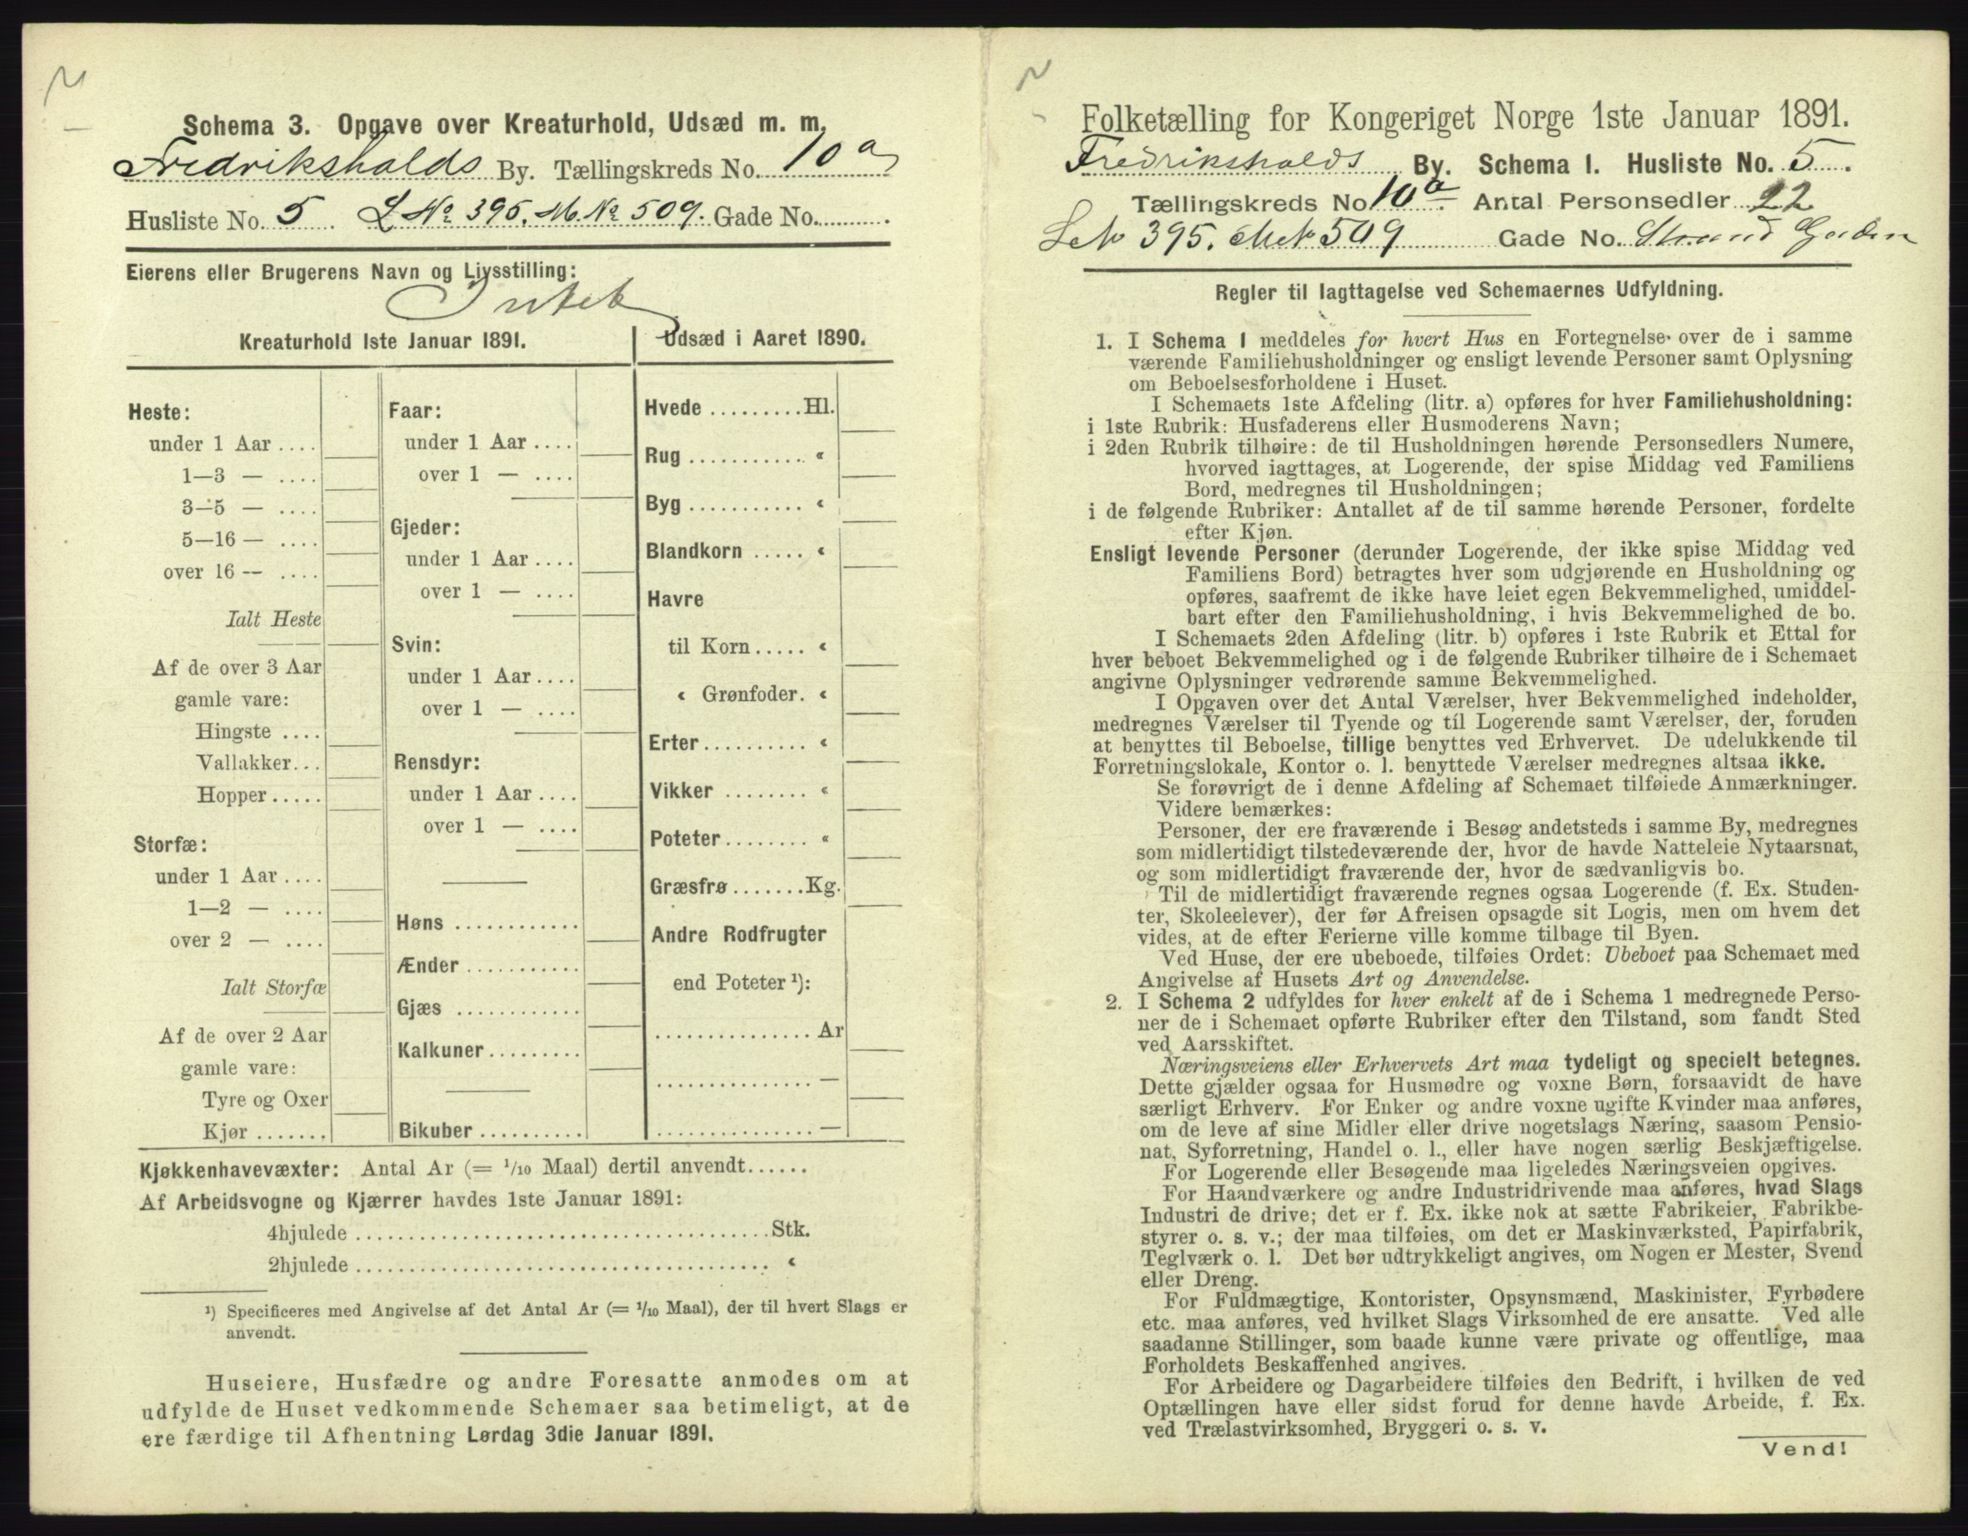 Schema 3. Opgave over Kreaturhold, Udsæd m. m.
Fredrikshalds By. Tællingskreds No. 10 a
Husliste No. 5 L No 395. M. No 509. Gade No.
Eierens eller Brugerens Navn og Livsstilling:
Intet
Kreaturhold 1ste Januar 1891.
Heste:
under 1 Aar ....
1—3 — ....
3—5 — ....
5—16 — ....
over 16 — ....
Ialt Heste
Af de over 3 Aar
gamle vare:
Hingste ....
Vallakker...
Hopper.....
Storfæ:
under 1 Aar ....
1—2 — ....
over 2 — ....
Ialt Storfæ
Af de over 2 Aar
gamle vare:
Tyre og Oxer
Kjør .......
Faar:
under 1 Aar ....
over 1 — ....
Gjeder:
under 1 Aar ....
over 1 — ....
Svin:
under 1 Aar ....
over 1 — ....
Rensdyr:
under 1 Aar ....
over 1 — ....
Høns ............
Ænder ...........
Gjæs ............
Kalkuner.........
Bikuber ..........
Udsæd i Aaret 1890.
Hvede .........Hl.
Rug ........... «
Byg ........... «
Blandkorn ..... «
Havre
til Korn ..... «
« Grønfoder. «
Erter.......... «
Vikker ........ «
Poteter........ «
Græsfrø.......Kg.
Andre Rodfrugter
end Poteter ¹):
............... Ar
............... —
............... —
Kjøkkenhavevæxter: Antal Ar (= 1/10 Maal) dertil anvendt......
Af Arbeidsvogne og Kjærrer havdes 1ste Januar 1891:
4hjulede ......................................Stk.
2hjulede ...................................... «
¹) Specificeres med Angivelse af det Antal Ar (= 1/10 Maal), der til hvert Slags er
anvendt.
Huseiere, Husfædre og andre Foresatte anmodes om at
udfylde de Huset vedkommende Schemaer saa betimeligt, at de
ere færdige til Afhentning Lørdag 3die Januar 1891.
Folketælling for Kongeriget Norge 1ste Januar 1891.
Fredrikshalds By. Schema I. Husliste No. 5.
Tællingskreds No 10 a. Antal Personsedler 22
395. 509 Gade No. Strand Gaden
Regler til Iagttagelse ved Schemaernes Udfyldning.
1. I Schema 1 meddeles for hvert Hus en Fortegnelse over de i samme
værende Familiehusholdninger og ensligt levende Personer samt Oplysning
om Beboelsesforholdene i Huset.
I Schemaets 1ste Afdeling (litr. a) opføres for hver Familiehusholdning:
i 1ste Rubrik: Husfaderens eller Husmoderens Navn;
i 2den Rubrik tilhøire: de til Husholdningen hørende Personsedlers Numere,
hvorved iagttages, at Logerende, der spise Middag ved Familiens
Bord, medregnes til Husholdningen;
i de følgende Rubriker: Antallet af de til samme hørende Personer, fordelte
efter Kjøn.
Ensligt levende Personer (derunder Logerende, der ikke spise Middag ved
Familiens Bord) betragtes hver som udgjørende en Husholdning og
opføres, saafremt de ikke have leiet egen Bekvemmelighed, umiddel-
bart efter den Familiehusholdning, i hvis Bekvemmelighed de bo.
I Schemaets 2den Afdeling (litr. b) opføres i 1ste Rubrik et Ettal for
hver beboet Bekvemmelighed og i de følgende Rubriker tilhøire de i Schemaet
angivne Oplysninger vedrørende samme Bekvemmelighed.
I Opgaven over det Antal Værelser, hver Bekvemmelighed indeholder,
medregnes Værelser til Tyende og til Logerende samt Værelser, der, foruden
at benyttes til Beboelse, tillige benyttes ved Erhvervet. De udelukkende til
Forretningslokale, Kontor o. l. benyttede Værelser medregnes altsaa ikke.
Se forøvrigt de i denne Afdeling af Schemaet tilføiede Anmærkninger.
Videre bemærkes:
Personer, der ere fraværende i Besøg andetsteds i samme By, medregnes
som midlertidigt tilstedeværende der, hvor de havde Natteleie Nytaarsnat,
og som midlertidigt fraværende der, hvor de sædvanligvis bo.
Til de midlertidigt fraværende regnes ogsaa Logerende (f. Ex. Studen-
ter, Skoleelever), der før Afreisen opsagde sit Logis, men om hvem det
vides, at de efter Ferierne ville komme tilbage til Byen.
Ved Huse, der ere ubeboede, tilføies Ordet: Ubeboet paa Schemaet med
Angivelse af Husets Art og Anvendelse.
2. I Schema 2 udfyldes for hver enkelt af de i Schema 1 medregnede Perso-
ner de i Schemaet opførte Rubriker efter den Tilstand, som fandt Sted
ved Aarsskiftet.
Næringsveiens eller Erhvervets Art maa tydeligt og specielt betegnes.
Dette gjælder ogsaa for Husmødre og voxne Børn, forsaavidt de have
særligt Erhverv. For Enker og andre voxne ugifte Kvinder maa anføres,
om de leve af sine Midler eller drive nogetslags Næring, saasom Pensio-
nat, Syforretning, Handel o. l., eller have nogen særlig Beskjæftigelse.
For Logerende eller Besøgende maa ligeledes Næringsveien opgives.
For Haandværkere og andre Industridrivende maa anføres, hvad Slags
Industri de drive; det er f. Ex. ikke nok at sætte Fabrikeier, Fabrikbe-
styrer o. s. v.; der maa tilføies, om det er Maskinværksted, Papirfabrik,
Teglværk o. l. Det bør udtrykkeligt angives, om Nogen er Mester, Svend
eller Dreng.
For Fuldmægtige, Kontorister, Opsynsmænd, Maskinister, Fyrbødere
etc. maa anføres, ved hvilket Slags Virksomhed de ere ansatte. Ved alle
saadanne Stillinger, som baade kunne være private og offentlige, maa
Forholdets Beskaffenhed angives.
For Arbeidere og Dagarbeidere tilføies den Bedrift, i hvilken de ved
Optællingen have eller sidst forud for denne havde Arbeide, f. Ex.
ved Trælastvirksomhed, Bryggeri o. s. v.
Vend!